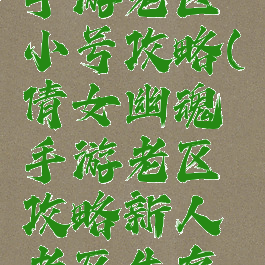 手游老区
小号攻略(
倩女幽魂
手游老区
攻略新人
老区生存